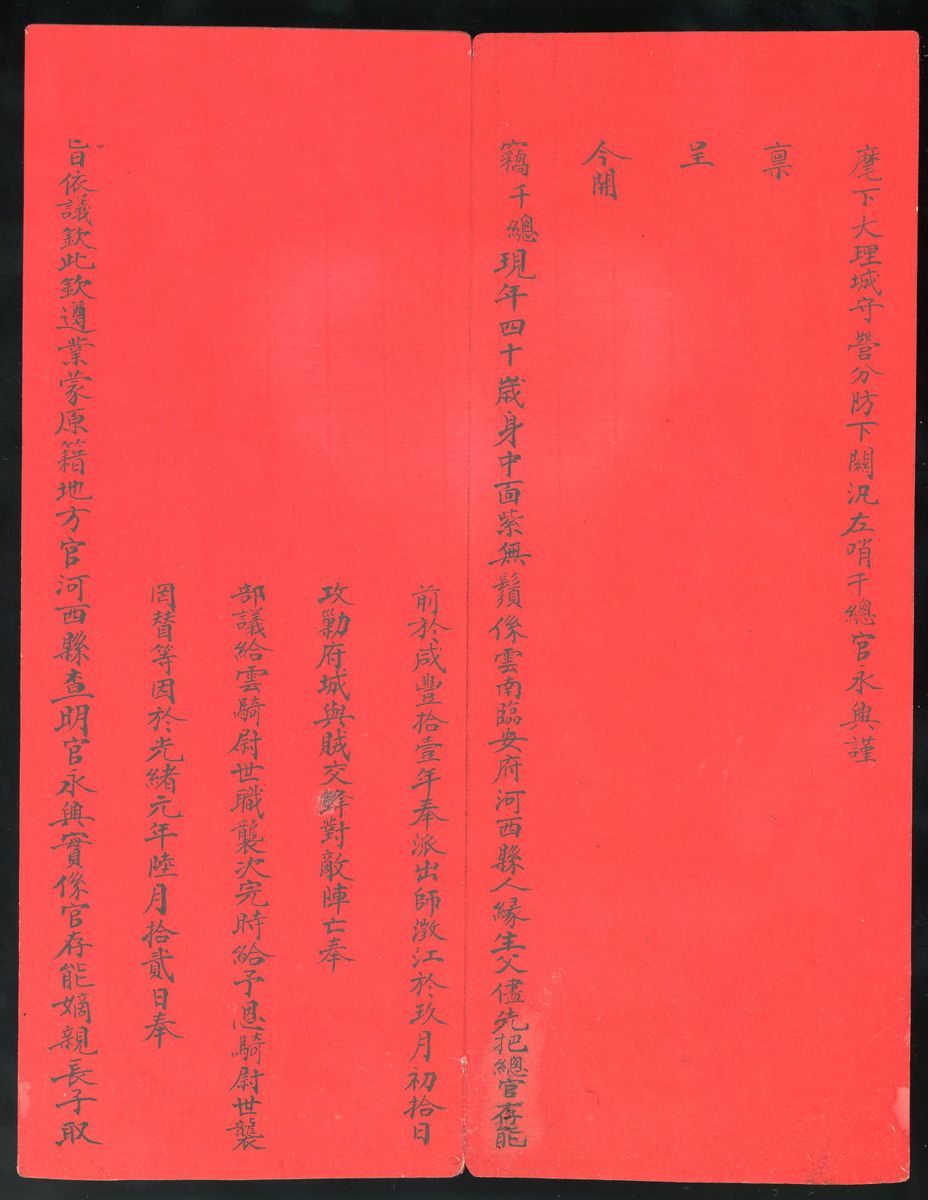 麾下大理城守營分防下關汛左哨千總官永興謹
稟
呈
今開
竊千總現年四十歲身中面紫無鬚係雲南臨安府河西縣人緣生父儘先把總官存能
前於咸豐拾壹年奉派出師澂江於玖月初拾日
攻勦府城與賊交鋒對敵陣亡奉
部議給雲騎尉世職襲次完時給予恩騎尉世襲
罔替等因於光緒元年陸月拾貳日奉
旨依議欽此欽遵業蒙原籍地方官河西縣查明官永興實係官存能嫡親長子取